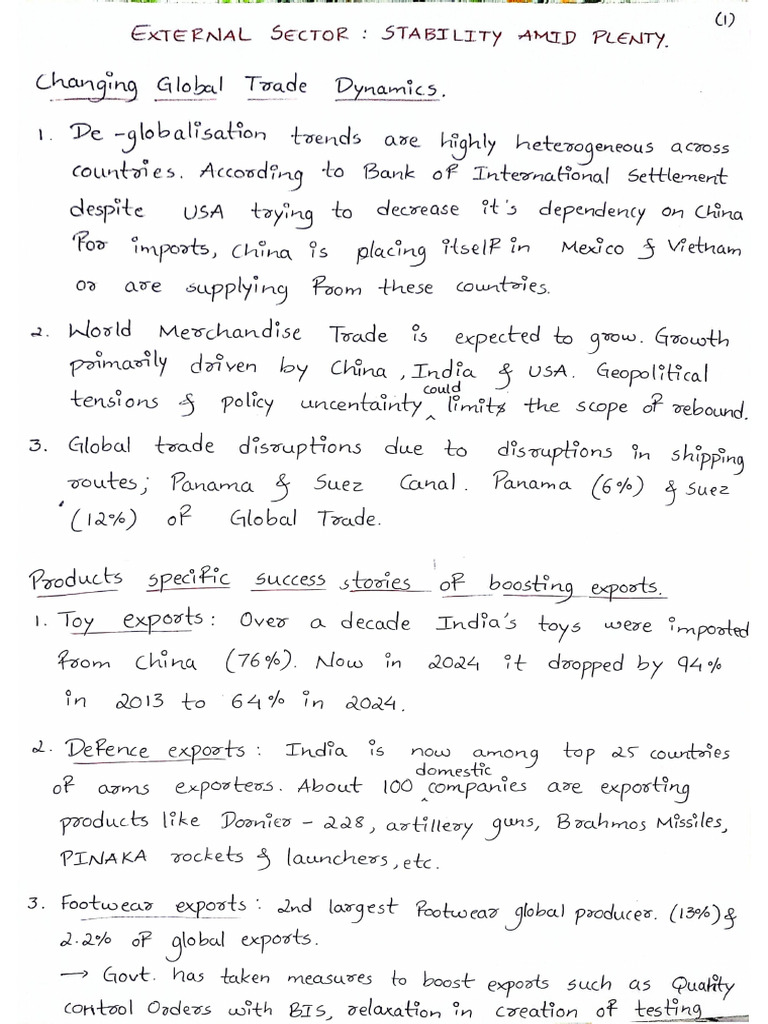 (1)
EXTERNAL SECTOR : STABILITY AMID PLENTY.
Changing Global Trade Dynamics.
1. De-globalisation trends are highly heterogeneous across
countries. According to Bank of International Settlement
despite USA trying to decrease it's dependency on China
for imports, China is placing itself in Mexico & Vietnam
or are supplying from these countries.
2. World Merchandise Trade is expected to grow. Growth
primarily driven by China, India & USA. Geopolitical
tensions & policy uncentainty could limits the scope of rebound.
3. Global trade disruptions due to disruptions in shipping
routes; Panama & Suez Canal. Panama (6%) & Suez
(12%) of Global Trade.
Products specific success stories of boosting exports.
1. Toy exports: Over a decade India's toys were imported
from China (76%). Now in 2024 it dropped by 94%
in 2013 to 64% in 2024.
2. Defence exports: India is now among top 25 countries
of arms exporters. About 100 domestic companies are exporting
products like Dornier - 228, artillery guns, Brahmos Missiles,
PINAKA rockets & launchers, etc.
3. Footwear exports: 2nd largest footwear global producer. (13%) &
2.2% of global exports.
→ Govt. has taken measures to boost exports such as Quality
control Orders with BIS, relaxation in creation of testing